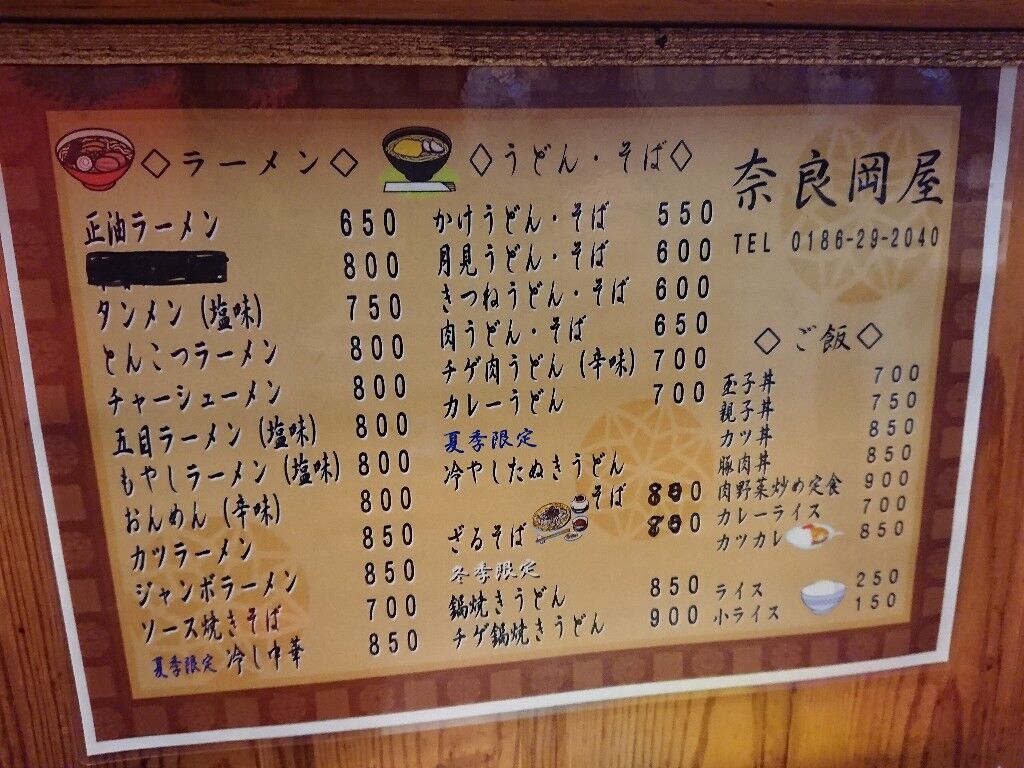 ◇ラーメン◇
正油ラーメン 650
800
タンメン(塩味) 750
とんこつラーメン 800
チャーシューメン 800
五目ラーメン(塩味) 800
もやしラーメン(塩味) 800
おんめん(辛味) 800
カツラーメン 850
ジャンボラーメン 850
ソース焼きそば 700
夏季限定 冷し中華 850
◇うどん・そば◇
かけうどん・そば 550
月見うどん・そば 600
きつねうどん・そば 600
肉うどん・そば 650
チゲ肉うどん(辛味) 700
カレーうどん 700
夏季限定
冷やしたぬきうどん
そば
ざるそば
冬季限定
鍋焼きうどん 850
チゲ鍋焼きうどん 900
奈良岡屋
TEL 0186-29-2040
◇ご飯◇
玉子丼 700
親子丼 750
カツ丼 850
豚肉丼 850
肉野菜炒め定食 900
カレーライス 700
カツカレ 850
ライス 250
小ライス 150